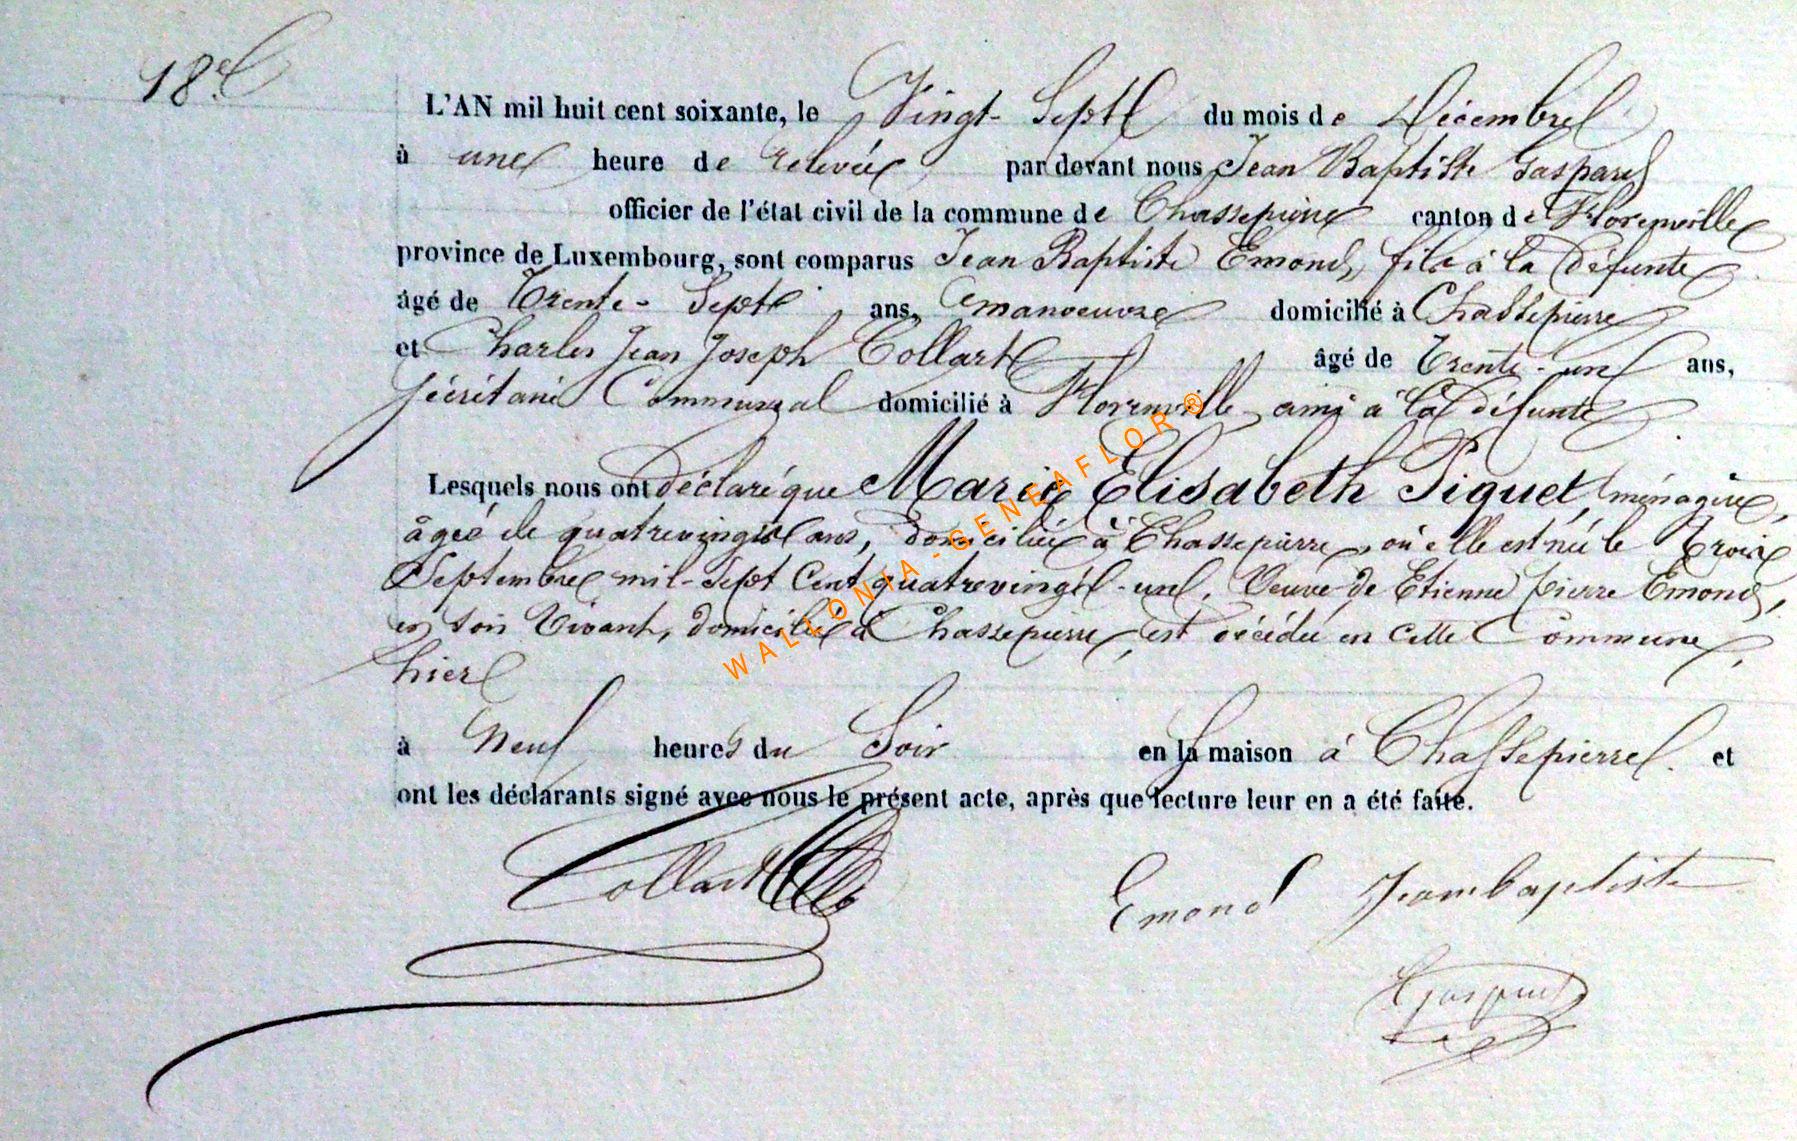 18e
L'AN mil huit cent soixante, le Vingt-Sept du mois de Décembre
à une heure de relevée par devant nous Jean Baptiste Gaspard
officier de l'état civil de la commune de Chassepierre canton de Florenville
province de Luxembourg, sont comparus Jean Baptiste Emond, fils à la défunte
âgé de Trente-Sept ans, manoeuvre domicilié à Chassepierre
et Charles Jean Joseph Collart âgé de Trente-un ans,
Sécrétaire Communal domicilié à Florenville ami à la défunte
Lesquels nous ont déclaré que Marie Elisabeth Piquet, ménagère,
âgée de quatrevingts ans, domiciliée à Chassepierre, où elle est née le Trois
Septembre mil-sept Cent quatrevingt-un, Veuve de Etienne Pierre Emond,
en son Vivant, domicilié à Chassepierre, est décédée en cette Commune,
hier
à Neuf heures du Soir en la maison à Chassepierre et
ont les déclarants signé avec nous le présent acte, après que lecture leur en a été faite.
Collart
Emond Jean baptiste
Gaspard
WALLONIA-GENEAFLOR®